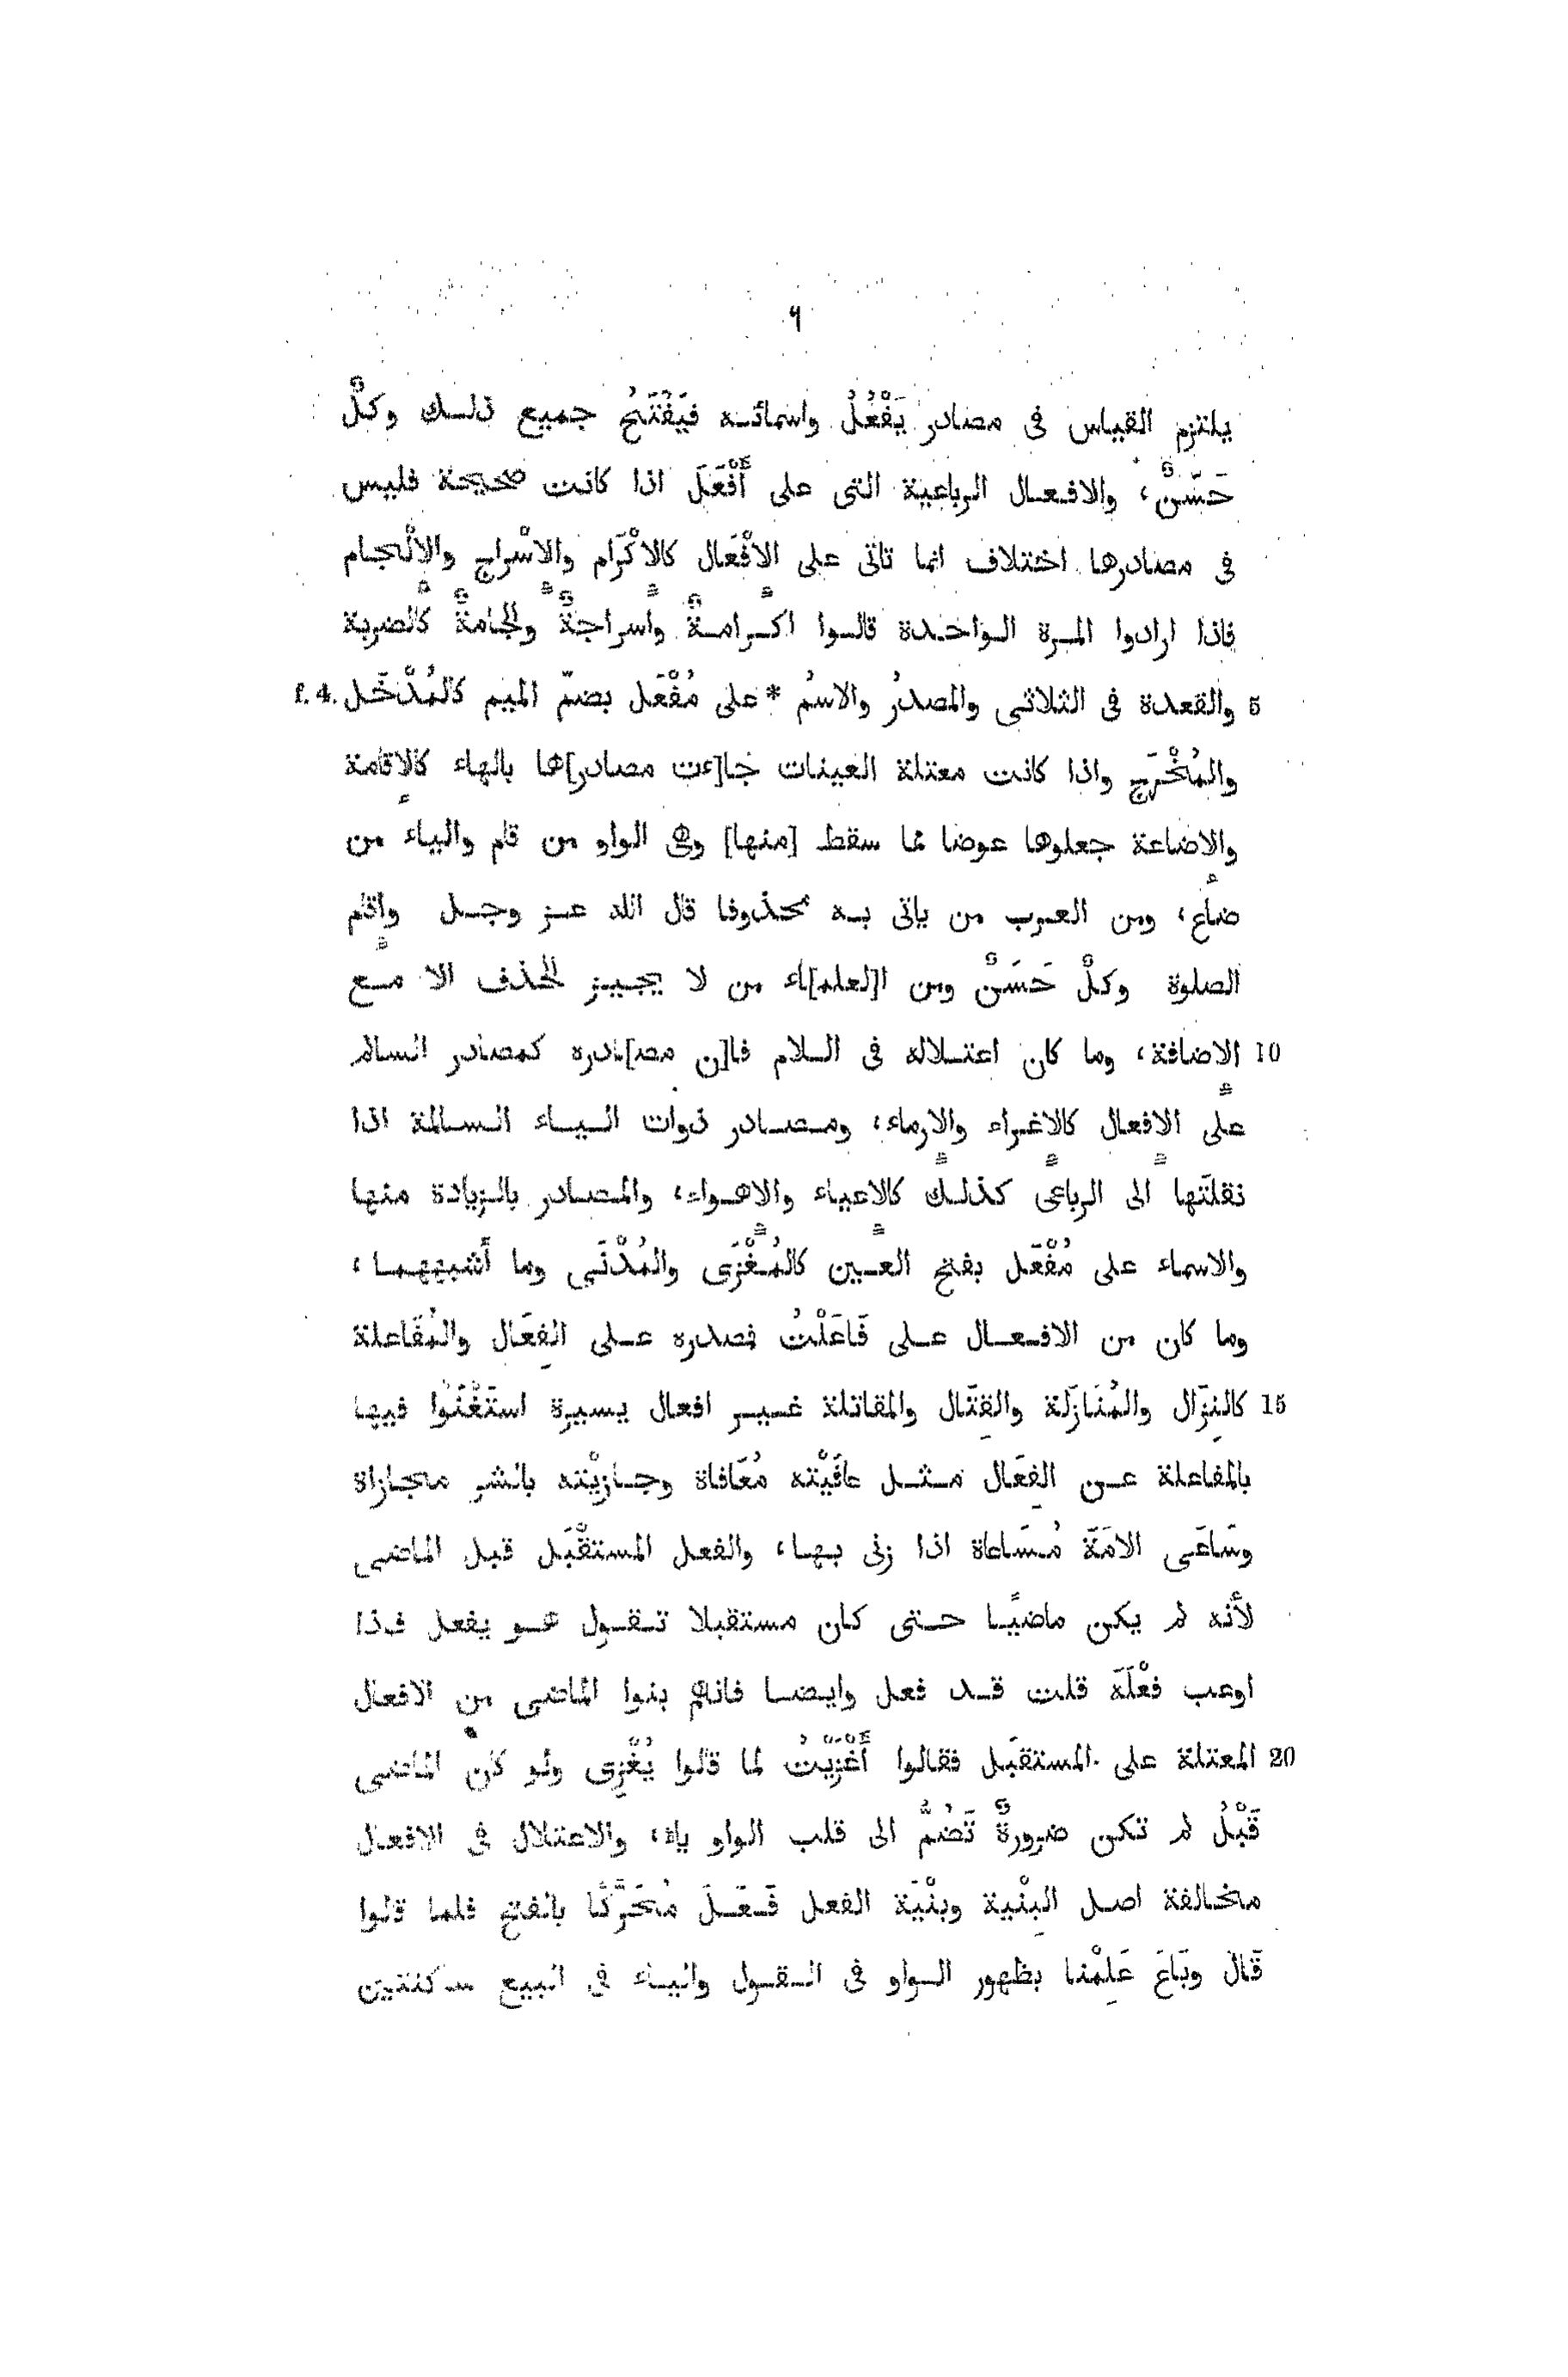 ٩
يلتزم القياس فى مصادر يَفْعُلُ واسمائه فيَفْتَحُ جميع ذلك وكلٌّ
حَسَنٌ، والافعال الرباعية التى على أَفْعَلَ اذا كانت صحيحة فليس
فى مصادرها اختلاف انما تاتى على الاِفْعَال كالاِكْرَام والاِسْراج والاِلْجام
فاذا ارادوا المرة الواحدة قالوا اِكرامةٌ واِسراجةٌ واِلجامةٌ كالضربة
5 والقعدة فى الثلاثى والمصدرُ والاسمُ * على مُفْعَل بضمّ الميم كالمُدْخَل f. 4.
والمُخْرَج واذا كانت معتلة العينات جا[ءت مصادر]ها بالهاء كالاِقامة
والاِضاعة جعلوها عوضا مما سقط [منها] وهى الواو من قام والياء من
ضاع، ومن العرب من ياتى به محذوفا قال الله عز وجل واِقام
الصلوة وكلٌّ حَسَنٌ ومن ا[لعلم]اء من لا يجيز الحذف الا مع
10 الاضافة، وما كان اعتلاله فى اللام فا[ن مص]ادره كمصادر السالم
على الاِفعال كالاِغراء والاِرماء، ومصادر ذوات الياء السالمة اذا
نقلتَها الى الرباعى كذلك كالاِعياء والاِهواء، والمصادر بالزيادة منها
والاسماء على مُفْعَل بفتح العين كالمُغْزَى والمُدْنَى وما أشبههما،
وما كان من الافعال على فَاعَلْتُ فمصدره على الفِعَال والمُفَاعلة
15 كالنِزَال والمُنَازَلة والقِتَال والمقاتلة غير افعال يسيرة استَغْنَوْا فيها
بالمفاعلة عن الفِعَال مثل عافَيْته مُعَافاة وجازيْته بالشر مجازاة
وسَاعَى الامَةَ مُسَاعاة اذا زنى بها، والفعل المستقْبَل قبل الماضى
لأنه لم يكن ماضيًا حتى كان مستقبلا تقول هو يفعل فاذا
اوعب فعْلَهَ قلت قد فعل وايضا فانهم بنوا الماضى من الافعال
20 المعتلة على المستقبَل فقالوا أَغْزَيْتُ لما قالوا يُغْزِى ولو كان الماضى
قَبْلُ لم تكن ضرورةٌ تَضُمُّ الى قلب الواو ياء، والاعتلال فى الافعال
مخالفة اصل البِنْية وبِنْيَة الفعل فَعَلَ مُحَرَّكًا بالفتح فلما قالوا
قَالَ وبَاعَ عَلِمْنا بظهور الواو فى القول والياء فى البيع ساكنتين